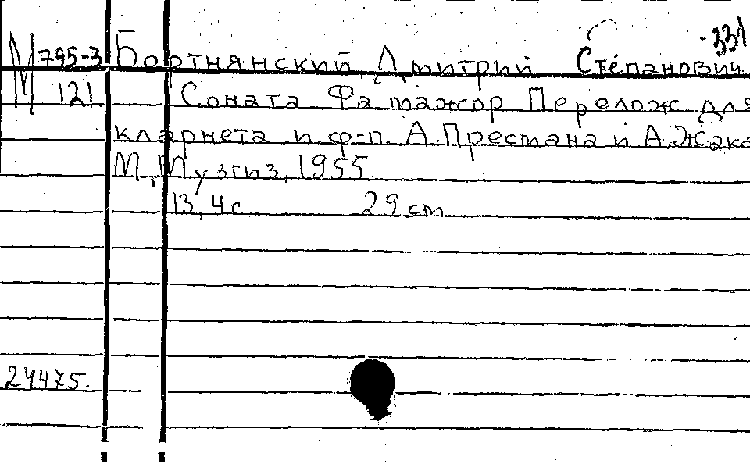 М 795-3 Бортнянский Дмитрий Степанович -331
121 Соната Фа мажор Перелож для
кларнета и ф-п. А.Престана и А.Жака
М., Музгиз, 1955
13, 4 с 29 cm
24475.